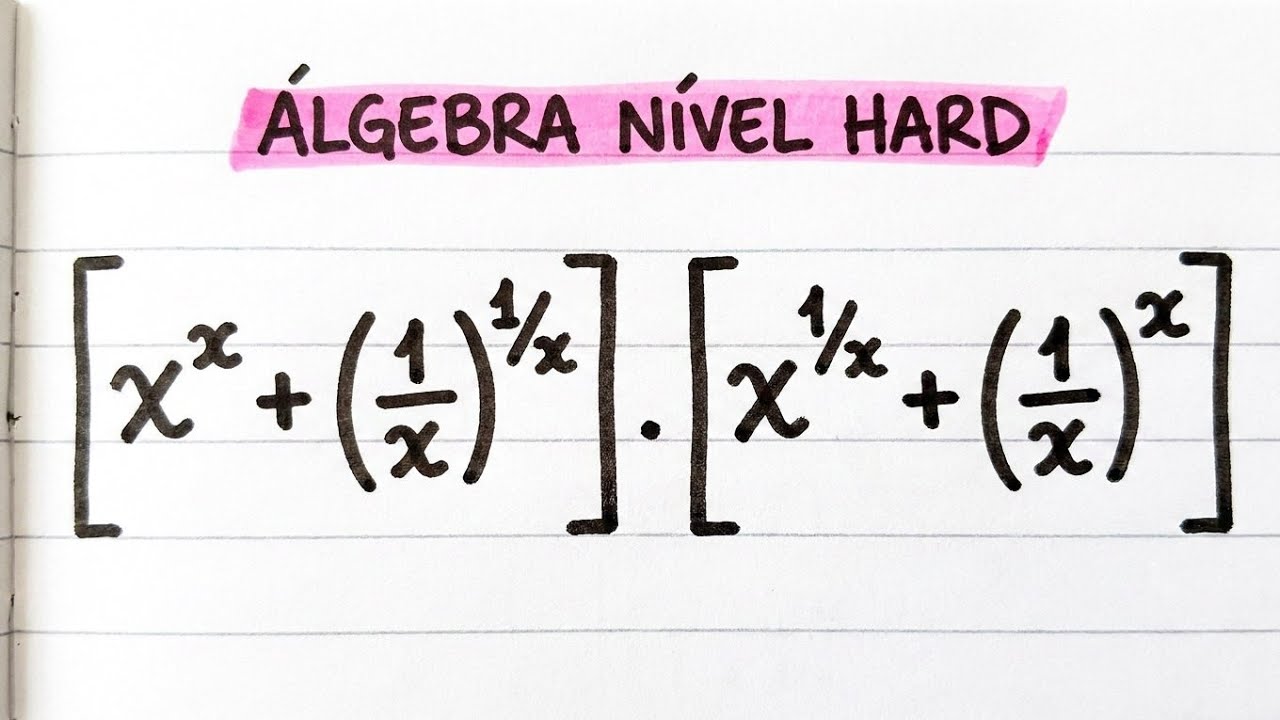 ÁLGEBRA NÍVEL HARD
[x^x + (1/x)^{1/x}] . [x^{1/x} + (1/x)^x]